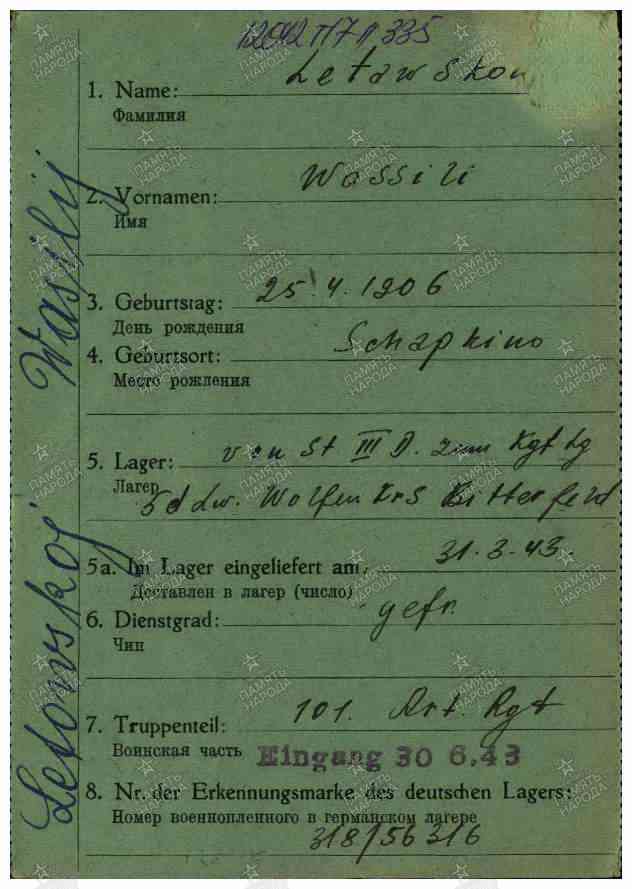 12042 П/7 Л 335
1. Name: Letawskou
Фамилия
2. Vornamen: Wassili
Имя
3. Geburtstag: 25.4.1906
День рождения
4. Geburtsort: Schapkino
Место рожления
5. Lager: von St III D. zum Kgf Lg
Лагер 5d Lw. Wolfen Krs Bitterfeld
5a. Im Lager eingeliefert am: 31.3.43.
Доставлен в лагер (число)
6. Dienstgrad: gefr.
Чин
7. Truppenteil: 101. Art. Rgt
Воинская часть Eingang 30 6.43
8. Nr. der Erkennungsmarke des deutschen Lagers:
Номер военнопленного в германском лагере
318/56316
Letowskoj Wasilij
ПАМЯТЬ НАРОДА